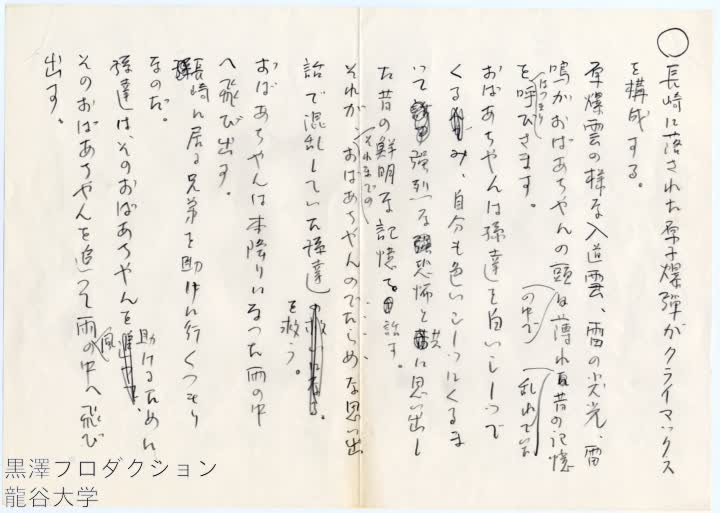 ○ 長崎に落された原子爆弾がクライマックス
を構成する。
原爆雲の様な入道雲、雷の尖光、雷
鳴がおばあちゃんの頭の中で乱れていた昔の記憶
をはっきり呼びさます。
おばあちゃんは孫達を白いシーツで
くるみ、自分も白いシーツにくるま
いて強烈な恐怖と共に思い出し
た昔の鮮明な記憶を話す。
それがそれまでのおばあちゃんのでたらめな思い出
話で混乱していた孫達を救う。
おばあちゃんは本降りになった雨の中
へ飛び出す。
長崎に居る兄弟を助けに行くつもり
なのだ。
孫達は、そのおばあちゃんを助けるために
そのおばあちゃんを追って風雨の中へ飛び
出す。
黒澤プロダクション
龍谷大学